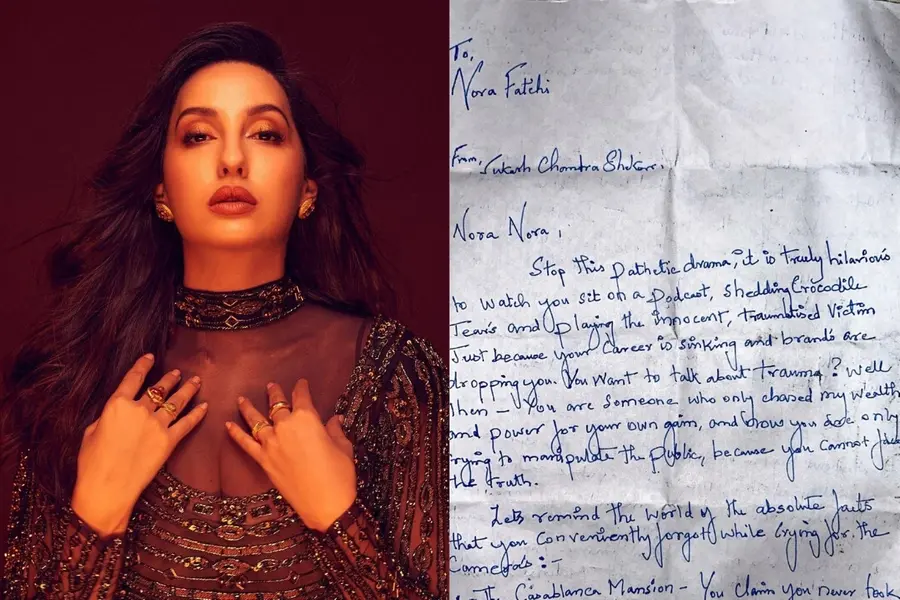 To,
Nora Fatehi
From, Sukash Chandra Shekar.
Nora Nora,
Stop this pathetic drama, it is truly hilarious
to watch you sit on a Podcast, shedding Crocodile
Tears and playing the innocent, traumatised Victim
Just because your Career is sinking and brands are
dropping you. You want to talk about trauma? Well
then - You are someone who only chased my Wealth
and power for your own gain, and now you are only
trying to manipulate the public, because you cannot face
the truth.
Lets remind the world of the absolute facts
that you Conveniently forgot while crying for the
Cameras:-
The Casablanca Mansion - You claim you never took